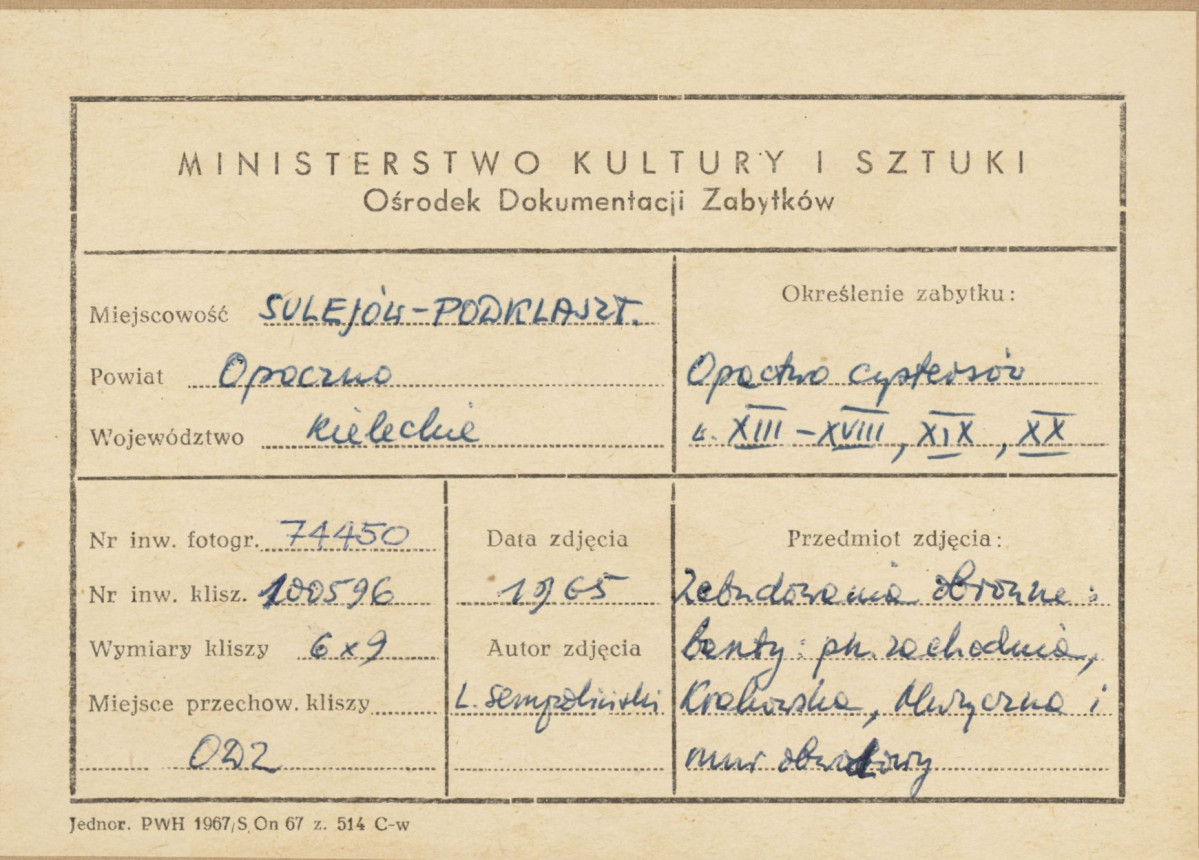 MINISTERSTWO KULTURY I SZTUKI
Ośrodek Dokumentacji Zabytków
Miejscowość SULEJÓW-PODKLASZT.
Powiat Opoczno
Województwo kieleckie
Określenie zabytku:
Opactwo cystersów
w. XIII-XVIII, XIX, XX
Nr inw. fotogr. 74450
Nr inw. klisz. 100596
Wymiary kliszy 6x9
Miejsce przechow. kliszy
ODZ
Data zdjęcia
1965
Autor zdjęcia
L. Sempoliński
Przedmiot zdjęcia:
Zabudowania obronne:
baszty: pn. zachodnia,
Krakowska, Muzyczna i
mur obwodowy
Jednor. PWH 1967/S.On 67 z. 514 C-w